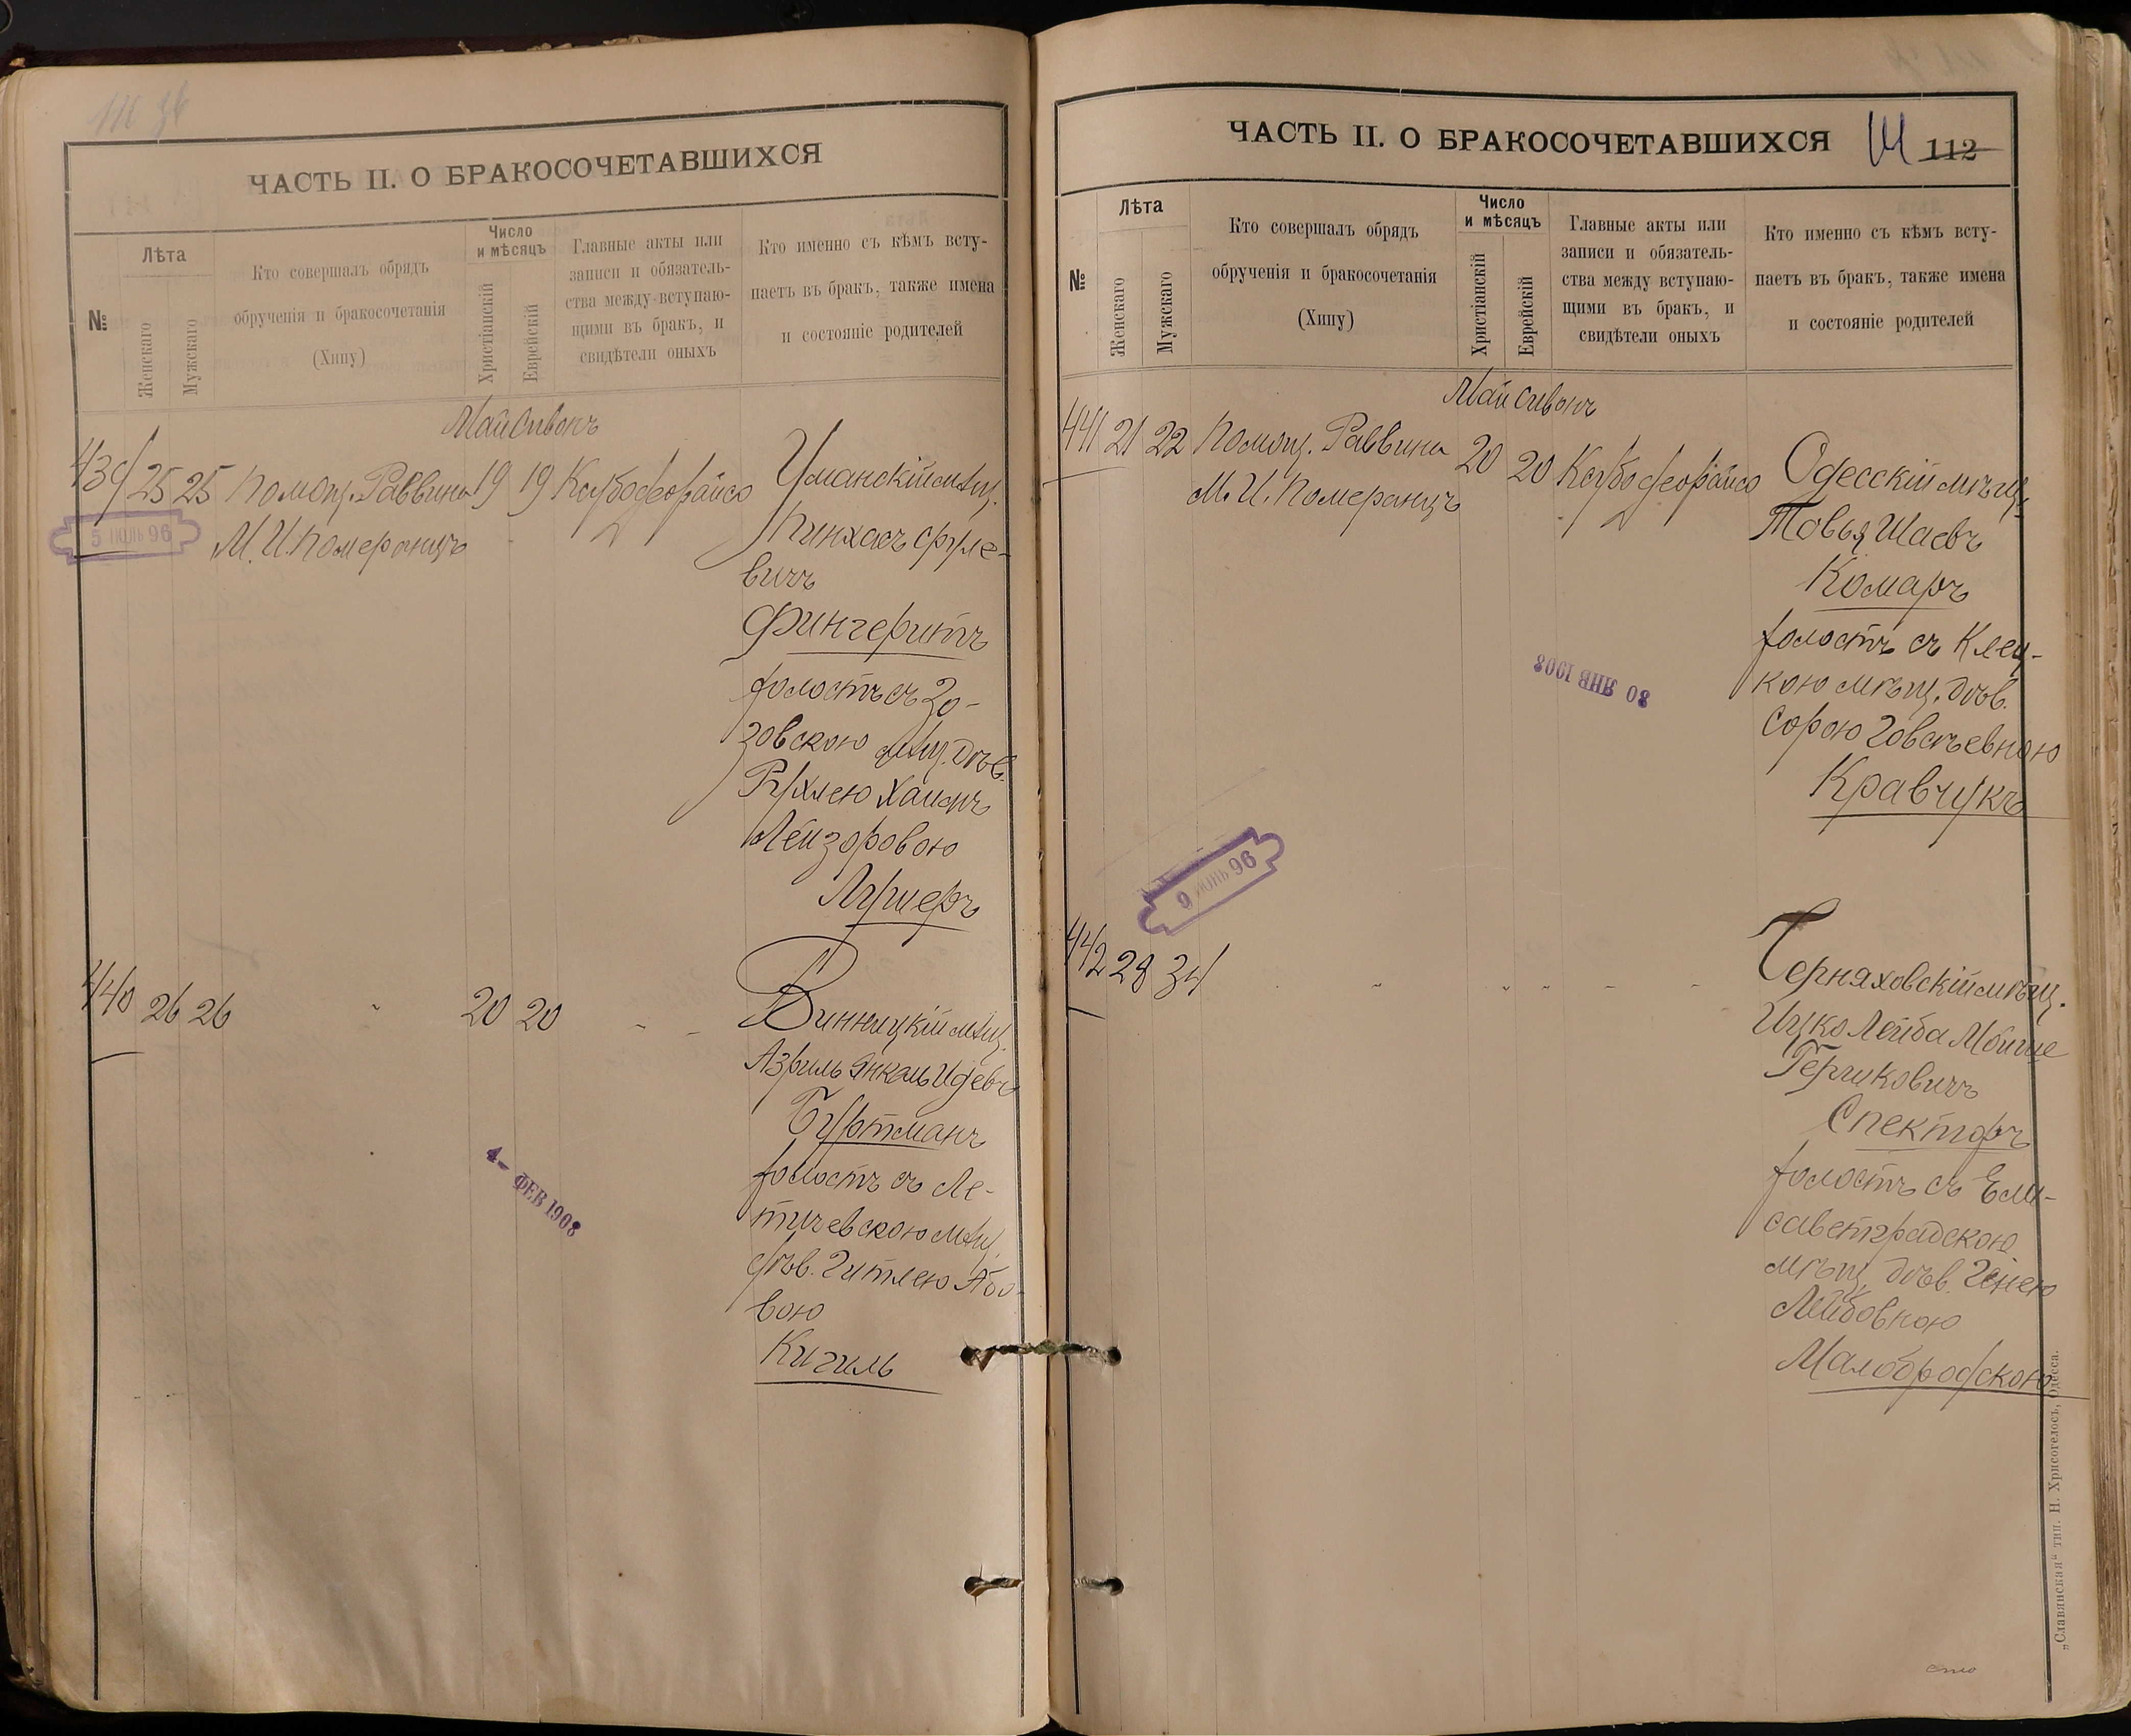 ЧАСТЬ II. О БРАКОСОЧЕТАВШИХСЯ
№
Лѣта
Женскаго
Мужскаго
Кто совершалъ обрядъ
обрученія и бракосочетанія
(Хипу)
Число
и мѣсяцъ
Христіанскій
Еврейскій
Главные акты или
записи и обязатель-
ства между вступаю-
щими въ бракъ, и
свидѣтели оныхъ
Кто именно съ кѣмъ всту-
паетъ въ бракъ, также имена
и состояніе родителей
Май Сивонъ
439 25 25 Помощ. Раввина 19 19
М. И. Померанцъ
5 ИЮЛЬ 96
Уманскій мѣщ.
Пинхасъ
вичъ
Фингеритъ
холостъ съ
зовскою мѣщ. дѣв.
Рухлею Хаимъ
Лейзоровою
Лушеръ
440 26 26 " 20 20 " "
Винницкій мѣщ.
Азриль Янкель
Буртманъ
холостъ съ Ле-
тичевскою мѣщ.
дѣв. Гитлею Або-
вою
Кигиль
4- ФЕВ 1908
ЧАСТЬ II. О БРАКОСОЧЕТАВШИХСЯ
111 112
№
Лѣта
Женскаго
Мужскаго
Кто совершалъ обрядъ
обрученія и бракосочетанія
(Хипу)
Число
и мѣсяцъ
Христіанскій
Еврейскій
Главные акты или
записи и обязатель-
ства между вступаю-
щими въ бракъ, и
свидѣтели оныхъ
Кто именно съ кѣмъ всту-
паетъ въ бракъ, также имена
и состояніе родителей
Май Сивонъ
441 21 22 Помощ. Раввина 20 20
М. И. Померанцъ
Одесскій мѣщ.
Товья Шаевъ
Комаръ
холостъ съ Клец-
кою мѣщ. дѣв.
Сорою Говсѣевною
Кравчукъ
30 ЯНВ 1908
9 ИЮНЬ 96
442 28 34 " " " " "
Черняховскій мѣщ.
Ицко Лейба Мойше
Гершковичъ
Спекторъ
холостъ съ Ели-
саветградскою
мѣщ. дѣв. Генею
Лейбовною
Малобродскою
„Славянская“ тип. Н. Хрисогелосъ, Одесса.